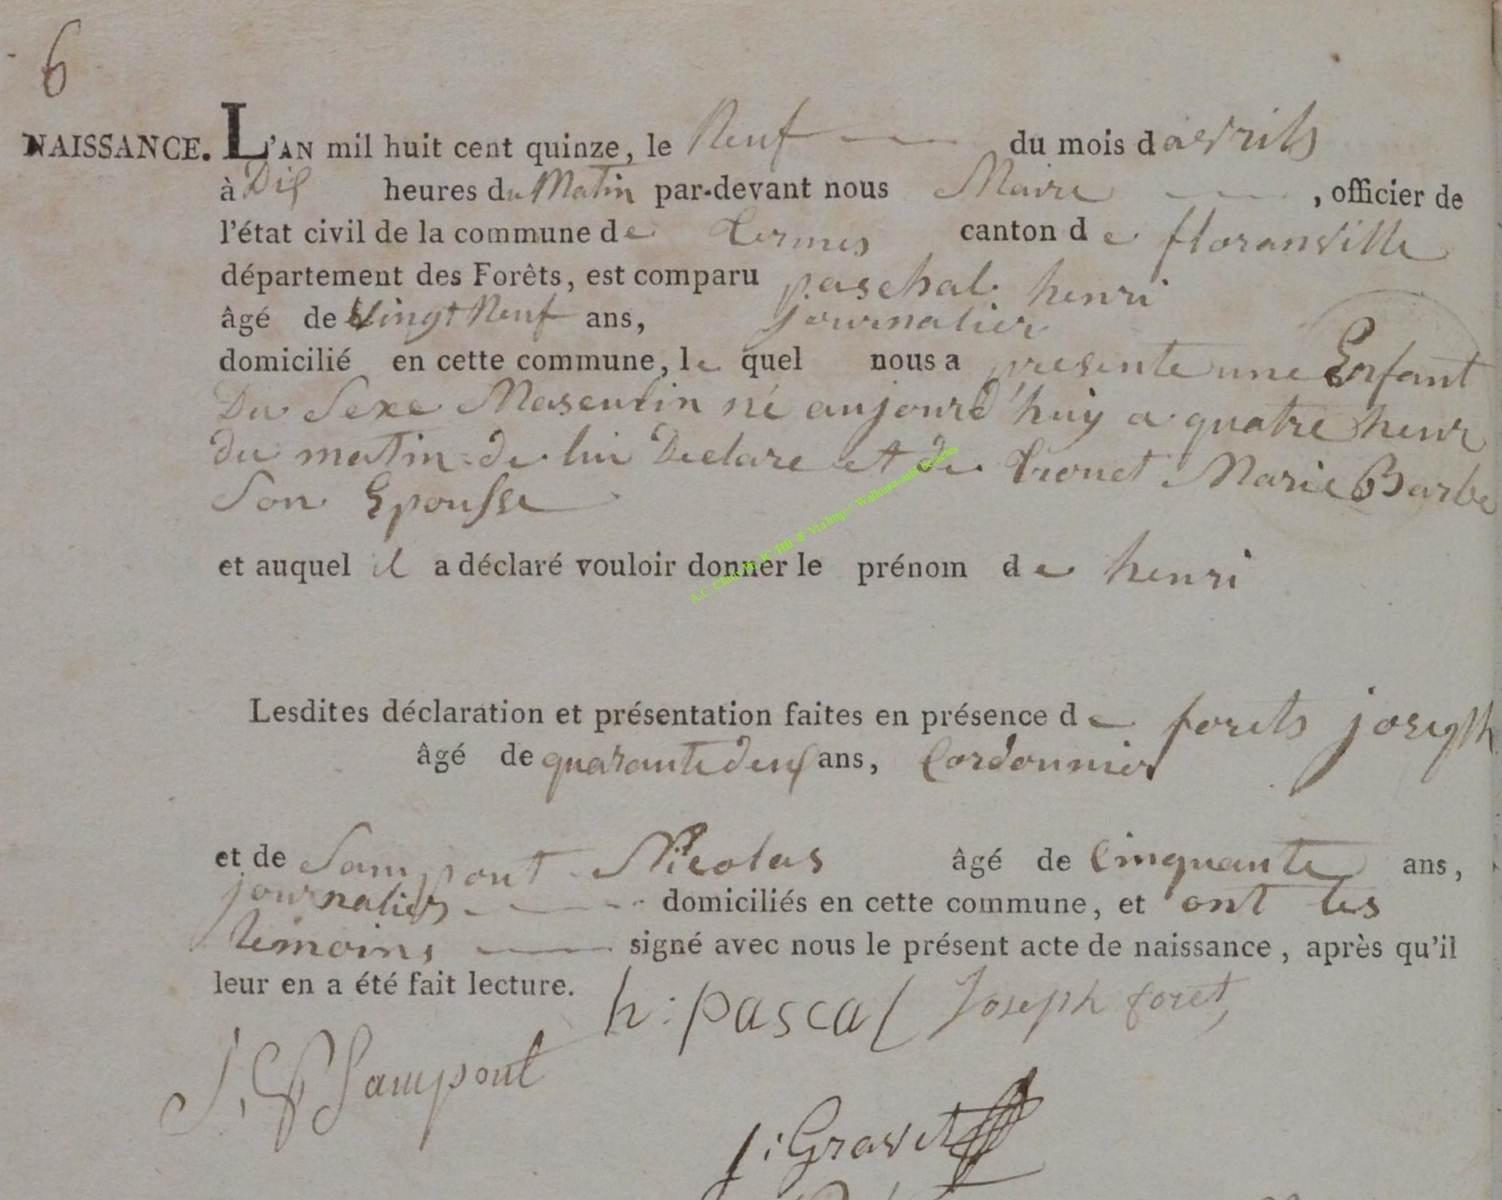 6
NAISSANCE. L'AN mil huit cent quinze, le Neuf du mois d avrils
à Dix heures du Matin par-devant nous Maire , officier de
l'état civil de la commune de termes canton de floranville
département des Forêts, est comparu paschal henri
âgé de Vingt Neuf ans, journalier
domicilié en cette commune, le quel nous a presente une Enfant
Du Sexe Masculin né aujourd'huy a quatre heur
du matin de lui Declare et de Marie Barbe
Son Epousse
et auquel il a déclaré vouloir donner le prénom de henri
Lesdites déclaration et présentation faites en présence de forets joseph
âgé de quarante deux ans, Cordonnier
et de Sampont Nicolas âgé de Cinquante ans,
journaliers domiciliés en cette commune, et ont les
témoins signé avec nous le présent acte de naissance, après qu'il
leur en a été fait lecture.
h: pascal Joseph foret
Sampont
j: Gravet